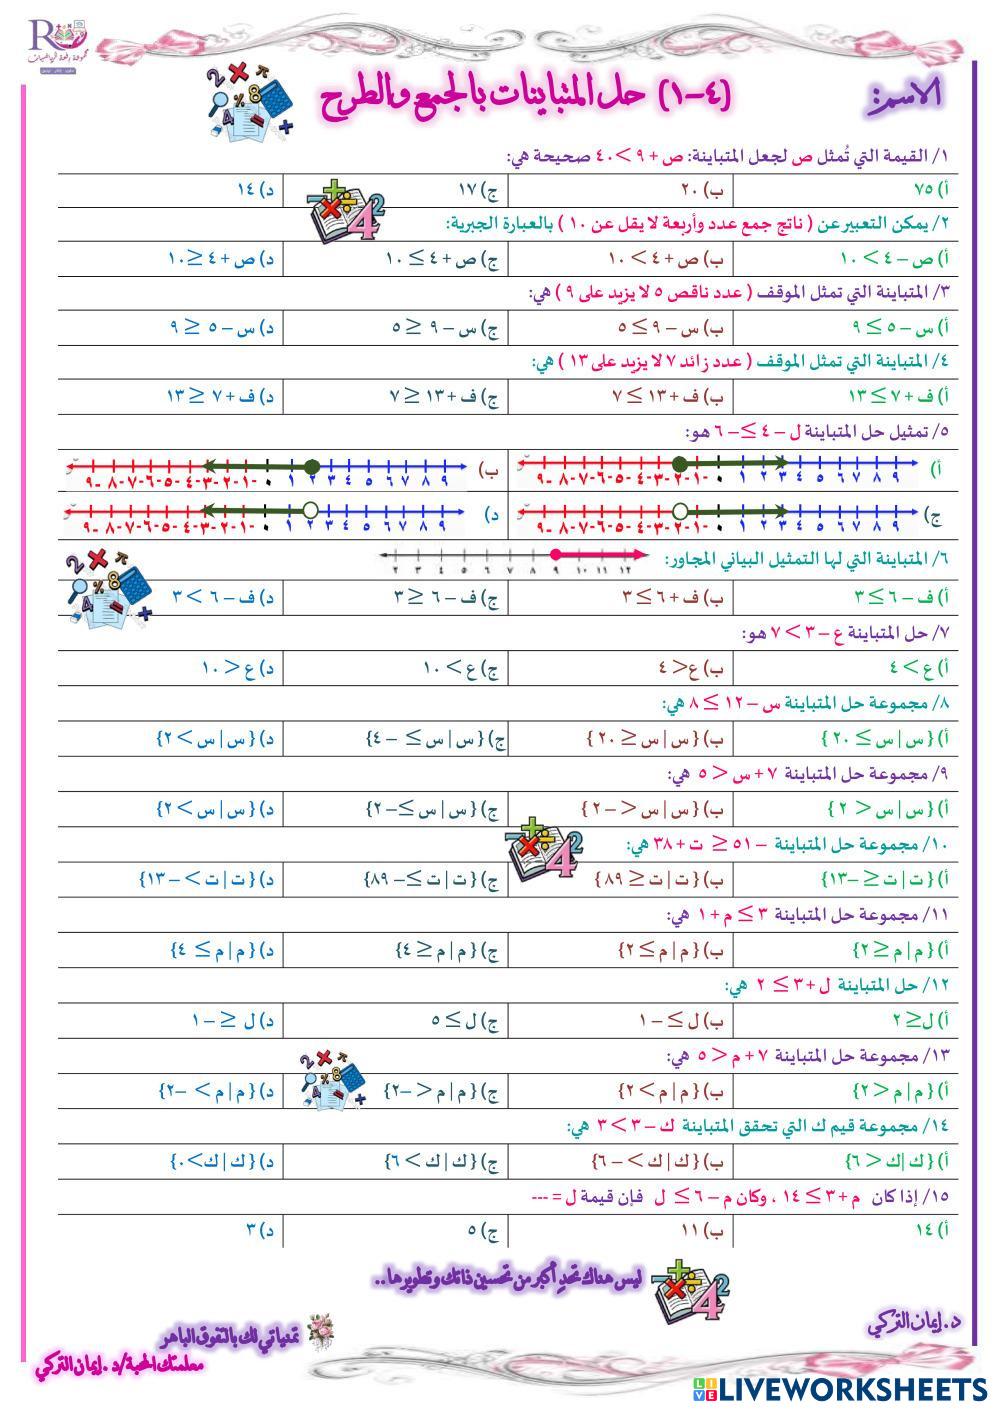 R
مجموعة رفعة الرياضيات
الاسم:
(٤-١) حل المتباينات بالجمع والطرح
١/ القيمة التي تُمثل ص لجعل المتباينة: ص + ٩ > ٤٠ صحيحة هي:
أ) ٧٥ ب) ٢٠ ج) ١٧ د) ١٤
٢/ يمكن التعبير عن ( ناتج جمع عدد وأربعة لا يقل عن ١٠ ) بالعبارة الجبرية:
أ) ص – ٤ > ١٠ ب) ص + ٤ > ١٠ ج) ص + ٤ ≥ ١٠ د) ص + ٤ ≤ ١٠
٣/ المتباينة التي تمثل الموقف ( عدد ناقص ٥ لا يزيد على ٩ ) هي:
أ) س – ٥ ≥ ٩ ب) س – ٩ ≥ ٥ ج) س – ٩ ≤ ٥ د) س – ٥ ≤ ٩
٤/ المتباينة التي تمثل الموقف ( عدد زائد ٧ لا يزيد على ١٣ ) هي:
أ) ف + ٧ ≥ ١٣ ب) ف + ١٣ ≥ ٧ ج) ف + ١٣ ≤ ٧ د) ف + ٧ ≤ ١٣
٥/ تمثيل حل المتباينة ل – ٤ ≥ – ٦ هو:
أ) ٩- ٨- ٧- ٦- ٥- ٤- ٣- ٢- ١- ٠ ١ ٢ ٣ ٤ ٥ ٦ ٧ ٨ ٩ ب) ٩- ٨- ٧- ٦- ٥- ٤- ٣- ٢- ١- ٠ ١ ٢ ٣ ٤ ٥ ٦ ٧ ٨ ٩
ج) ٩- ٨- ٧- ٦- ٥- ٤- ٣- ٢- ١- ٠ ١ ٢ ٣ ٤ ٥ ٦ ٧ ٨ ٩ د) ٩- ٨- ٧- ٦- ٥- ٤- ٣- ٢- ١- ٠ ١ ٢ ٣ ٤ ٥ ٦ ٧ ٨ ٩
٦/ المتباينة التي لها التمثيل البياني المجاور: ٢ ٣ ٤ ٥ ٦ ٧ ٨ ٩ ١٠ ١١ ١٢
أ) ف – ٦ ≥ ٣ ب) ف + ٦ ≥ ٣ ج) ف – ٦ ≤ ٣ د) ف – ٦ > ٣
٧/ حل المتباينة ع – ٣ > ٧ هو:
أ) ع > ٤ ب) ع < ٤ ج) ع > ١٠ د) ع < ١٠
٨/ مجموعة حل المتباينة س – ١٢ ≥ ٨ هي:
أ) { س | س ≥ ٢٠ } ب) { س | س ≤ ٢٠ } ج) { س | س ≥ – ٤} د) { س | س > ٢}
٩/ مجموعة حل المتباينة ٧ + س < ٥ هي:
أ) { س | س < ٢ } ب) { س | س < – ٢ } ج) { س | س ≥ – ٢} د) { س | س > ٢}
١٠/ مجموعة حل المتباينة – ٥١ ≤ ت + ٣٨ هي:
أ) { ت | ت ≤ –١٣} ب) { ت | ت ≤ ٨٩ } ج) { ت | ت ≥ – ٨٩} د) { ت | ت > –١٣}
١١/ مجموعة حل المتباينة ٣ ≥ م + ١ هي:
أ) { م | م ≤ ٢} ب) { م | م ≥ ٢} ج) { م | م ≤ ٤} د) { م | م ≥ ٤}
١٢/ حل المتباينة ل + ٣ ≥ ٢ هي:
أ) ل ≤ ٢ ب) ل ≥ – ١ ج) ل ≥ ٥ د) ل ≤ – ١
١٣/ مجموعة حل المتباينة ٧ + م < ٥ هي:
أ) { م | م < ٢} ب) { م | م > ٢} ج) { م | م < –٢} د) { م | م > –٢}
١٤/ مجموعة قيم ك التي تحقق المتباينة ك – ٣ > ٣ هي:
أ) { ك | ك < ٦} ب) { ك | ك > – ٦} ج) { ك | ك > ٦} د) { ك | ك > ٠}
١٥/ إذا كان م + ٣ ≥ ١٤ ، وكان م – ٦ ≥ ل فإن قيمة ل = ---
أ) ١٤ ب) ١١ ج) ٥ د) ٣
ليس هناك تحدٍ أكبر من تحسين ذاتك وتطويرها ..
د. إيمان التركي
تمنياتي لك بالتفوق الباهر
معلمتك المحبة/د . إيمان التركي
LIVEWORKSHEETS